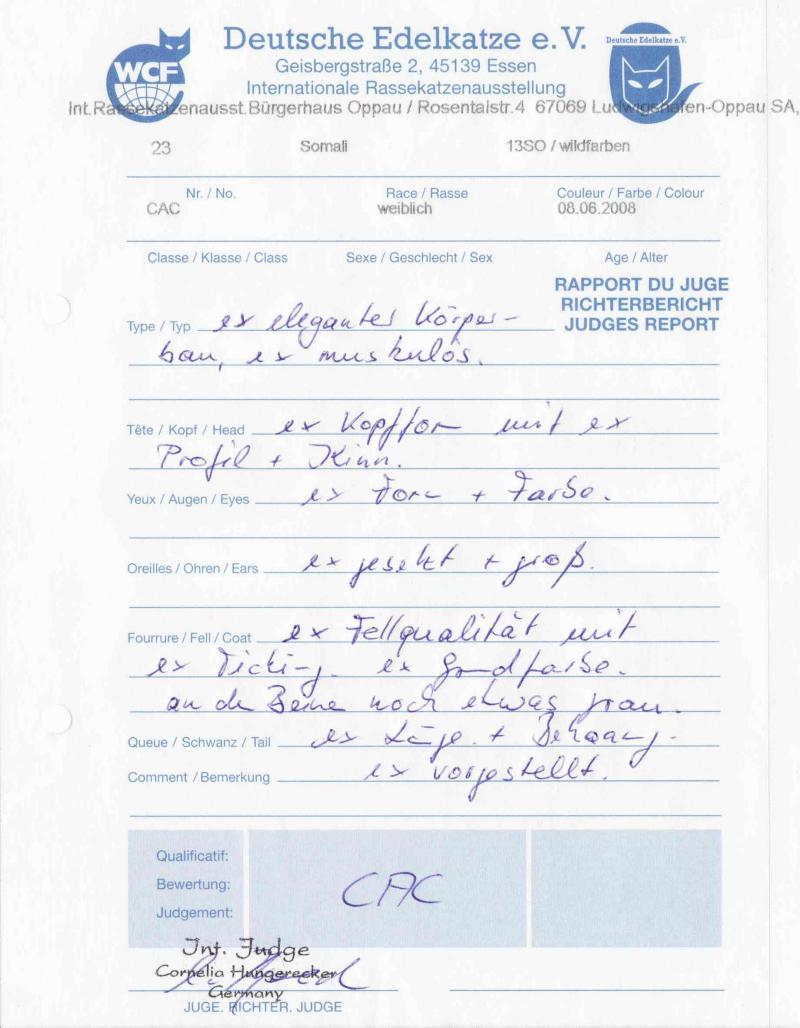 WCF
Deutsche Edelkatze e.V.
Deutsche Edelkatze e.V.
Geisbergstraße 2, 45139 Essen
Internationale Rassekatzenausstellung
Int.Rassekatzenausst.Bürgerhaus Oppau / Rosentalstr.4 67069 Ludwigshafen-Oppau SA,
23 Somali 13SO / wildfarben
Nr. / No. Race / Rasse Couleur / Farbe / Colour
CAC weiblich 08.06.2008
Classe / Klasse / Class Sexe / Geschlecht / Sex Age / Alter
RAPPORT DU JUGE
RICHTERBERICHT
JUDGES REPORT
Type / Typ ex elegantes Körper-
bau, ex muskulös.
Tête / Kopf / Head ex Kopfform mit ex
Profil + Kinn.
Yeux / Augen / Eyes ex Form + Farbe.
Oreilles / Ohren / Ears ex gesetzt + groß.
Fourrure / Fell / Coat ex Fellqualität mit
ex Ticking. ex Grundfarbe.
an den Beine noch etwas grau.
Queue / Schwanz / Tail ex Länge. + Behaarung.
Comment / Bemerkung ex vorgestellt.
Qualificatif:
Bewertung: CAC
Judgement:
Int. Judge
Cornelia Hungerecker
Germany
JUGE. RICHTER. JUDGE